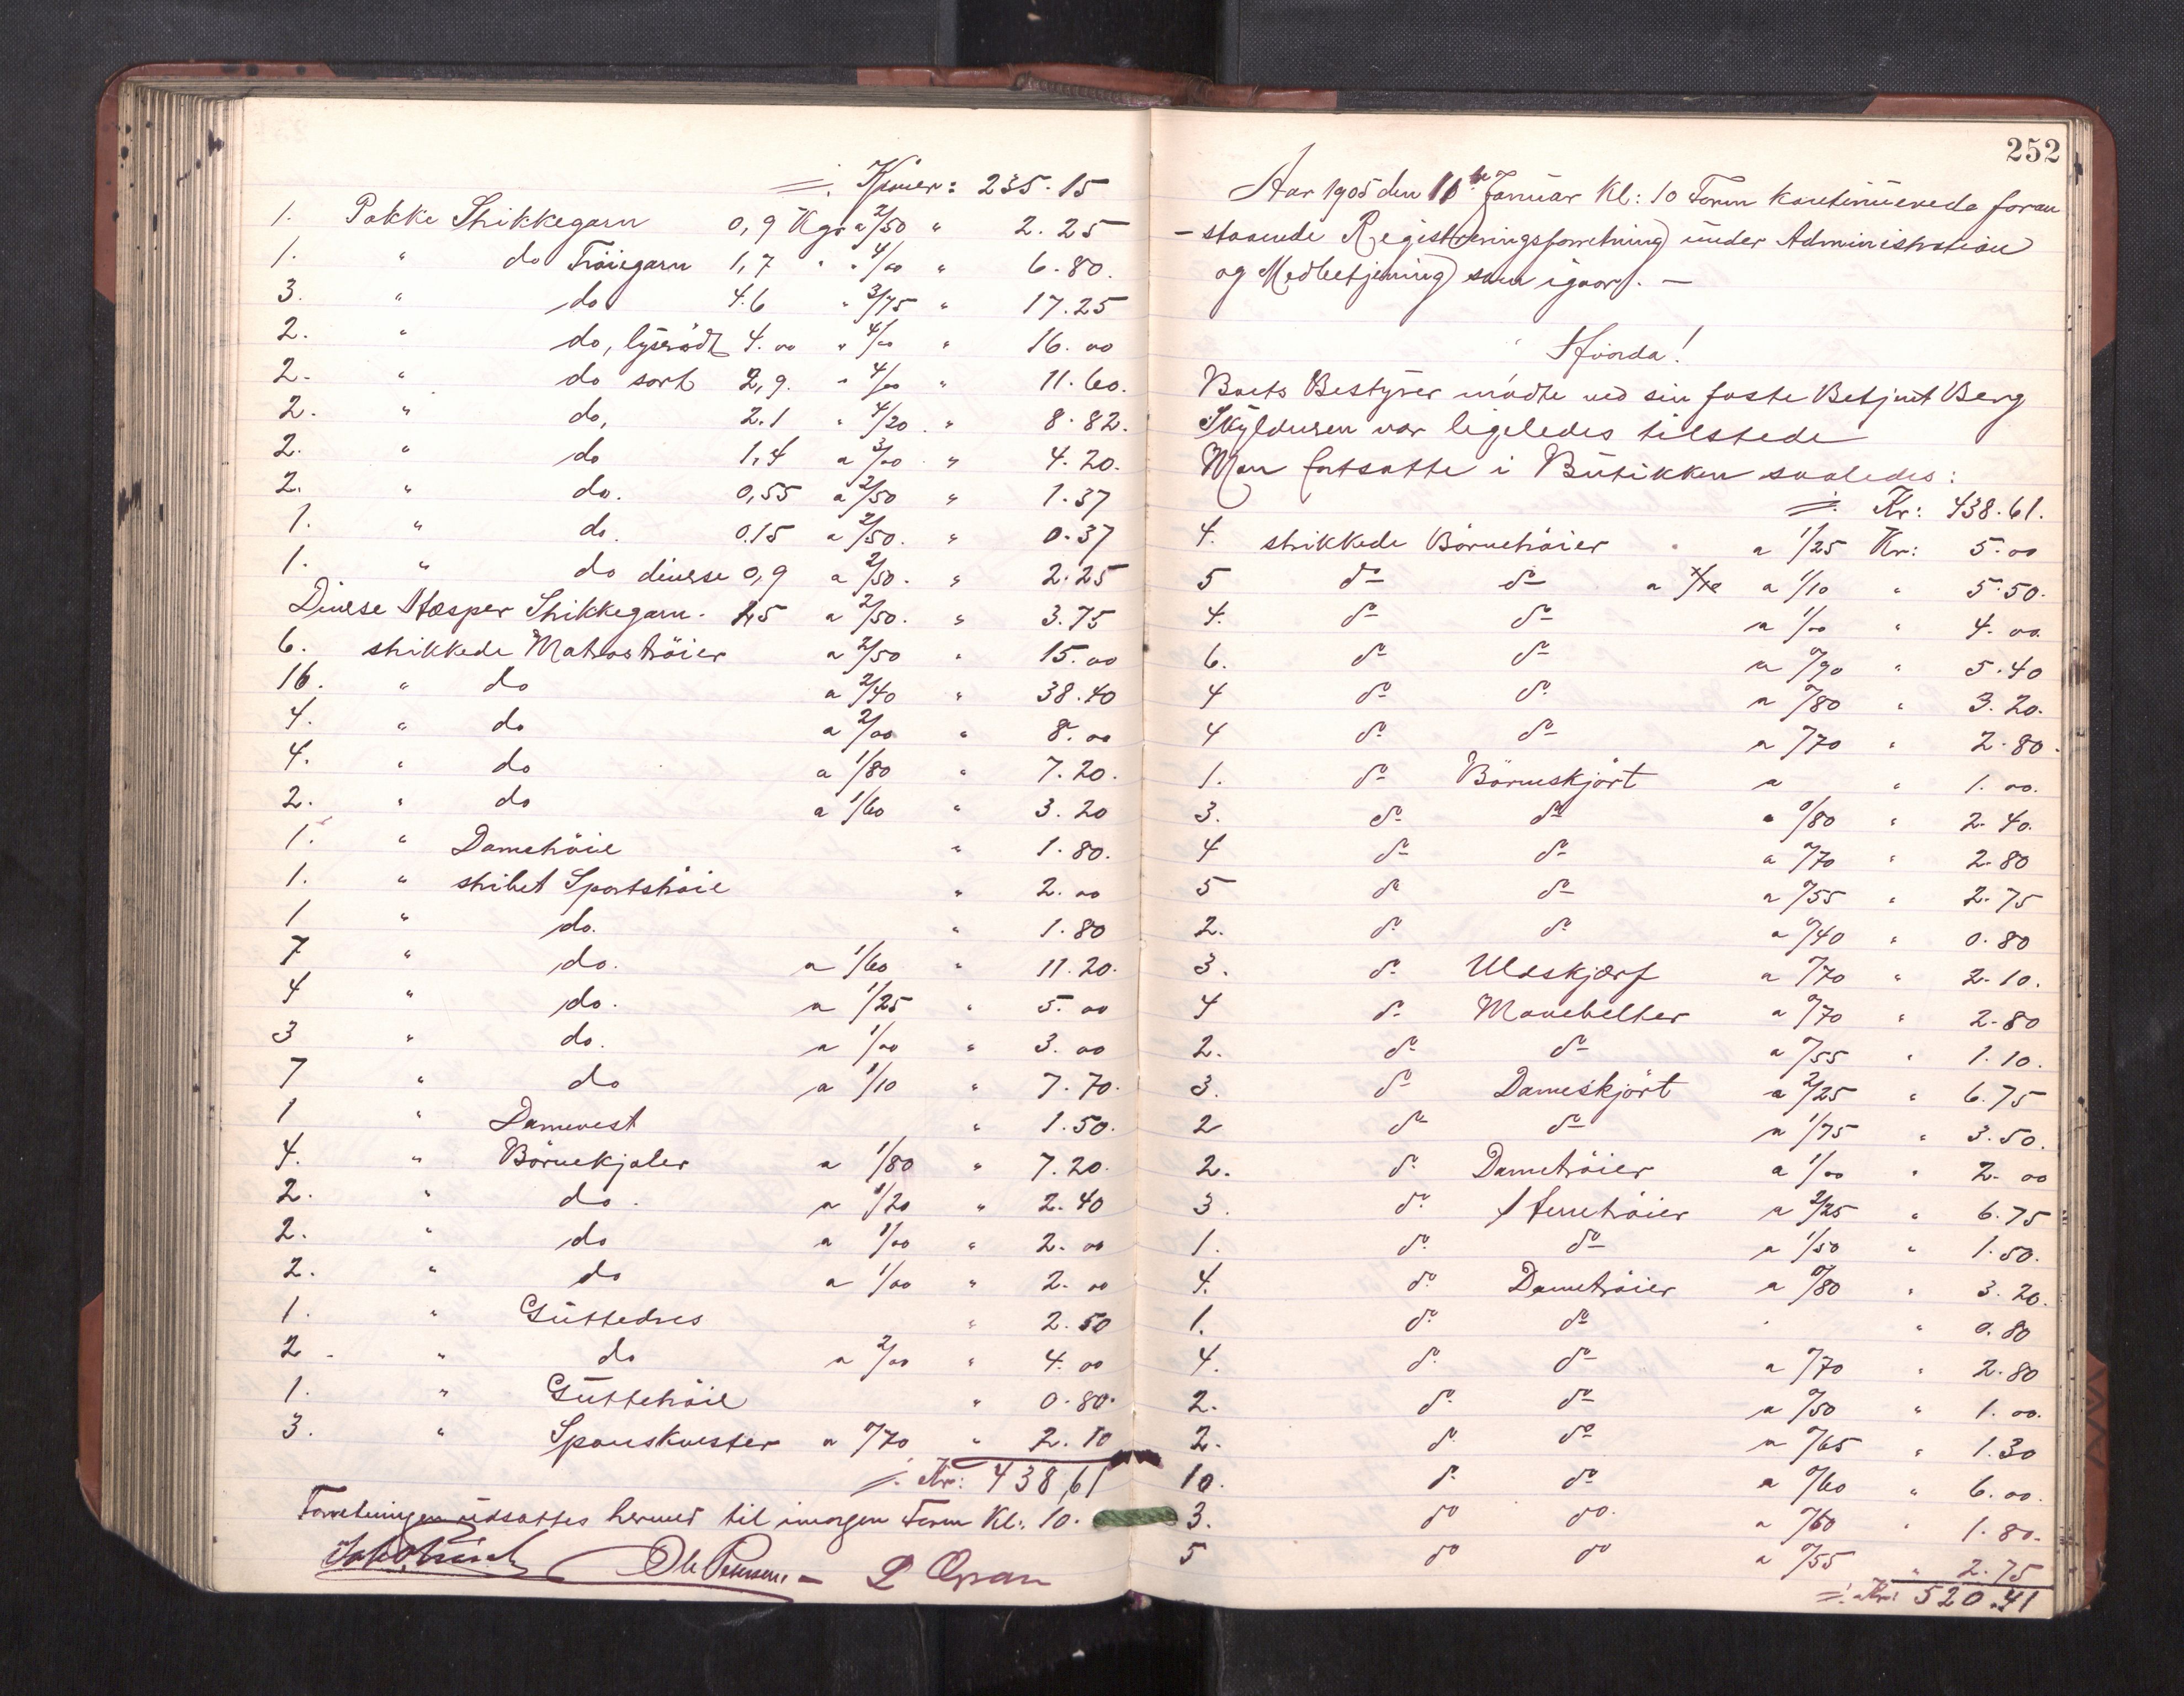 ⹀. Kroner: 235.15
1. Pakke Strikkegarn 0,9 Kgr a 2/50 " 2.25
1. " do Tröiegarn 1,7 " " 4/00 " 6.80.
3. " do 4.6 " 3/75 " 17.25
2. " do, lyserödt 4.00 " 4/00 " 16.00
2. " do sort 2,9. " 4/00 " 11.60.
2. " do, 2.1 " 4/20. " 8.82.
2. " do 1,4 a 3/00 " 4.20.
2. " do. 0,55 a 2/50 " 1.37
1. " do. 0.15 a 2/50. " 0.37
1. " do diverse 0,9 a 2/50. " 2.25
Diverse Hæsper Strikkegarn. 1,5 a 2/50. " 3.75
6. strikkede Matrostöier a 2/50 " 15.00
16. " do a 2/40 " 38.40
4. " do a 2/00 " 8.00
4. " do a 1/80 " 7.20.
2. " do a 1/60 " 3.20
1. " Dametröie " 1.80.
1. " stribet Sportströie " 2.00
1 " do. " 1.80
7 " do. a 1/60 " 11.20.
4 " do. a 1/25 " 5.00
3 " do. a 1/00 " 3.00
7 " do a 1/10 " 7.70.
1 " Damevest " 1.50.
4. " Börnekjoler a 1/80 " 7.20.
2. " do. a 1/20 " 2.40
2. " do a 1/00 " 2.00
2. " do a 1/00 " 2.00
1. " Guttedres " 2.50
2. " do a 2/00 " 4.00
1. " Guttetröie " 0.80.
3. " Spanskvester a 0/70 " 2.10
⹀. Kr: 438,61
Forretningen udsattes hermed til imorgen Form Kl: 10.
Ole Petersen
252
Aar 1905 den 11te Januar Kl: 10 Form kontinuerede foran
-staaende Registreringsforretning under Administration
og Medbetjening som igaar. -
Hvorda!
Boets Bestyrer mödte ved sin faste Betjent Berg
Skyldneren var ligeledes tilstede
Man fortsatte i Butikken saaledes:
⹀. Kr: 438.61.
4. strikkede Börnetröier a 1/25 Kr: 5.00
5 do do a 1/10 " 5.50.
4. do do a 1/00 " 4.00.
6. do do a 0/90 " 5.40
4 do do a 0/80 " 3.20.
4 do do a 0/70 " 2.80.
1. do Börneskjört a " 1.00.
3. do do a 0/80 " 2.40.
4 do do a 0/70 " 2.80
5 do do a 0/55 " 2.75
2. do do a 0/40 " 0.80
3. do Uldskjærf a 0/70 " 2.10.
4 do Mavebelter a 0/70 " 2.80
2. do do a 0/55 " 1.10.
3. do Dameskjört a 2/25 " 6.75
2 do do a 1/75 " 3.50.
2. do Dametröier a 1/00 " 2.00
3. do Herretröier a 2/25 " 6.75
1. do do a 1/50 " 1.50.
4. do Dametröier a 0/80 " 3.20.
1. do do " 0.80
4. do do a 0/70 " 2.80
2. do do a 0/50 " 1.00.
2. do do a 0/65 " 1.30
10. do do a 0/60 " 6.00.
3. do do. a 0/60 " 1.80.
5 do do a 0/55 " 2.75
⹀. Kr: 520.41